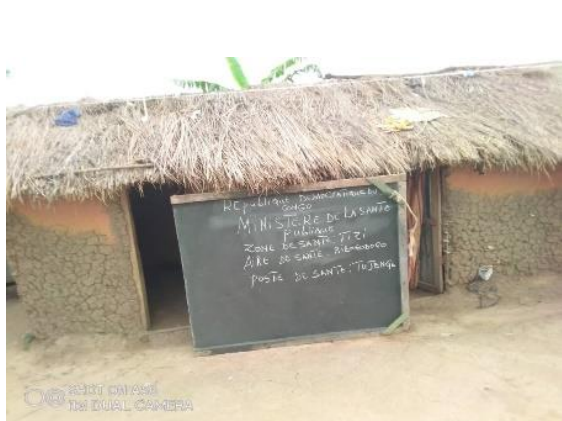 REPUBLIQUE DEMOCRATIQUE DU
CONGO
MINISTERE DE LA SANTE
PUBLIQUE
ZONE DE SANTE TIZI
AIRE DE SANTE:
POSTE DE SANTE: TUJENGE
SHOT ON
DUAL CAMERA